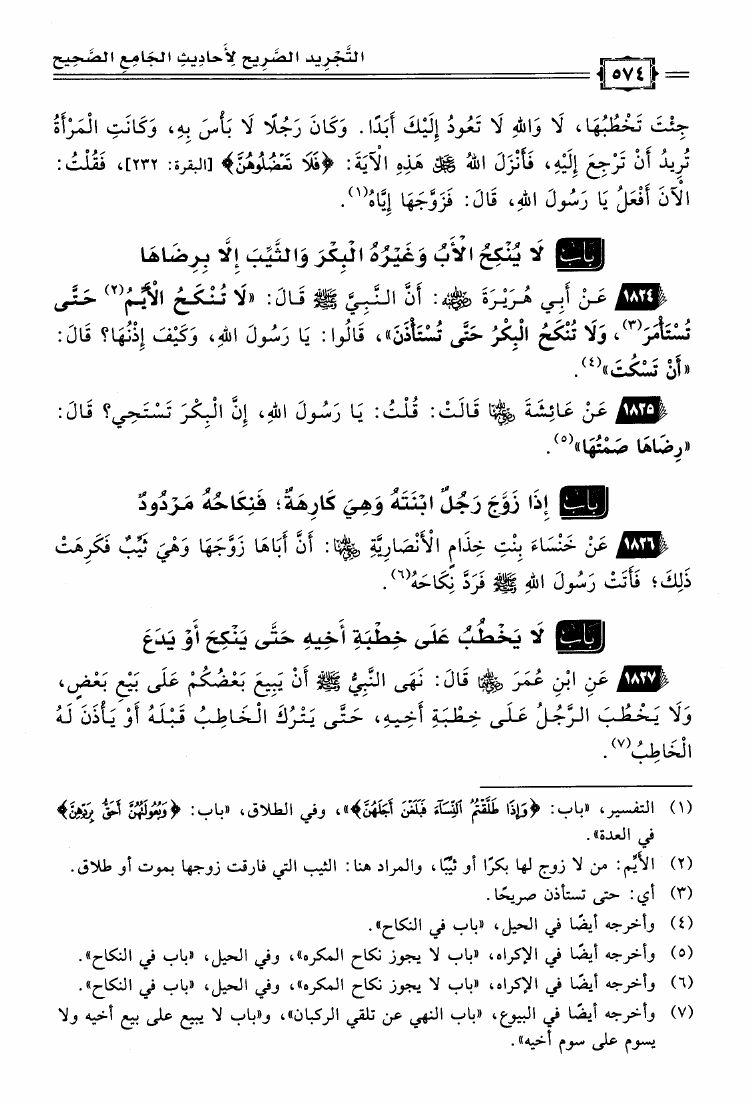 التَّجْرِيد الصَّرِيح لِأَحَادِيثِ الجَامِعِ الصَّحِيح
٥٧٤
جِئْتَ تَخْطُبُهَا، لَا وَاللهِ لَا تَعُودُ إِلَيْكَ أَبَدًا. وَكَانَ رَجُلًا لَا بَأْسَ بِهِ، وَكَانَتِ الْمَرْأَةُ
تُرِيدُ أَنْ تَرْجِعَ إِلَيْهِ، فَأَنْزَلَ اللهُ ﷻ هَذِهِ الْآيَةَ: ﴿فَلَا تَعْضُلُوهُنَّ﴾ [البقرة: ٢٣٢]، فَقُلْتُ:
الْآنَ أَفْعَلُ يَا رَسُولَ اللهِ، قَالَ: فَزَوَّجَهَا إِيَّاهُ(١).
بَابٌ لَا يُنْكِحُ الْأَبُ وَغَيْرُهُ الْبِكْرَ وَالثَّيِّبَ إِلَّا بِرِضَاهَا
١٨٢٤ عَنْ أَبِي هُرَيْرَةَ رضي الله عنه: أَنَّ النَّبِيَّ ﷺ قَالَ: «لَا تُنْكَحُ الْأَيِّمُ(٢) حَتَّى
تُسْتَأْمَرَ(٣)، وَلَا تُنْكَحُ الْبِكْرُ حَتَّى تُسْتَأْذَنَ»، قَالُوا: يَا رَسُولَ اللهِ، وَكَيْفَ إِذْنُهَا؟ قَالَ:
«أَنْ تَسْكُتَ»(٤).
١٨٢٥ عَنْ عَائِشَةَ رضي الله عنها قَالَتْ: قُلْتُ: يَا رَسُولَ اللهِ، إِنَّ الْبِكْرَ تَسْتَحِي؟ قَالَ:
«رِضَاهَا صَمْتُهَا»(٥).
بَابٌ إِذَا زَوَّجَ رَجُلٌ ابْنَتَهُ وَهِيَ كَارِهَةٌ؛ فَنِكَاحُهُ مَرْدُودٌ
١٨٢٦ عَنْ خَنْسَاءَ بِنْتِ خِذَامٍ الْأَنْصَارِيَّةِ رضي الله عنها: أَنَّ أَبَاهَا زَوَّجَهَا وَهْيَ ثَيِّبٌ فَكَرِهَتْ
ذَلِكَ؛ فَأَتَتْ رَسُولَ اللهِ ﷺ فَرَدَّ نِكَاحَهُ(٦).
بَابٌ لَا يَخْطُبُ عَلَى خِطْبَةِ أَخِيهِ حَتَّى يَنْكِحَ أَوْ يَدَعَ
١٨٢٧ عَنِ ابْنِ عُمَرَ رضي الله عنهما قَالَ: نَهَى النَّبِيُّ ﷺ أَنْ يَبِيعَ بَعْضُكُمْ عَلَى بَيْعِ بَعْضٍ،
وَلَا يَخْطُبَ الرَّجُلُ عَلَى خِطْبَةِ أَخِيهِ، حَتَّى يَتْرُكَ الْخَاطِبُ قَبْلَهُ أَوْ يَأْذَنَ لَهُ
الْخَاطِبُ(٧).
(١) التفسير، «باب: ﴿وَإِذَا طَلَّقْتُمُ النِّسَاءَ فَبَلَغْنَ أَجَلَهُنَّ﴾»، وفي الطلاق، «باب: ﴿وَبُعُولَتُهُنَّ أَحَقُّ بِرَدِّهِنَّ﴾
في العدة».
(٢) الأَيِّم: من لا زوج لها بكرًا أو ثيِّبًا، والمراد هنا: الثيب التي فارقت زوجها بموت أو طلاق.
(٣) أي: حتى تستأذن صريحًا.
(٤) وأخرجه أيضًا في الحيل، «باب في النكاح».
(٥) وأخرجه أيضًا في الإكراه، «باب لا يجوز نكاح المكره»، وفي الحيل، «باب في النكاح».
(٦) وأخرجه أيضًا في الإكراه، «باب لا يجوز نكاح المكره»، وفي الحيل، «باب في النكاح».
(٧) وأخرجه أيضًا في البيوع، «باب النهي عن تلقي الركبان»، و«باب لا يبيع على بيع أخيه ولا
يسوم على سوم أخيه».